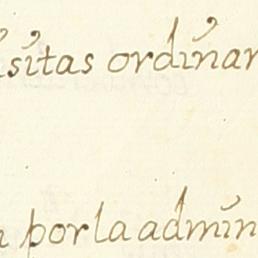 isitas ordinar
n por la admin